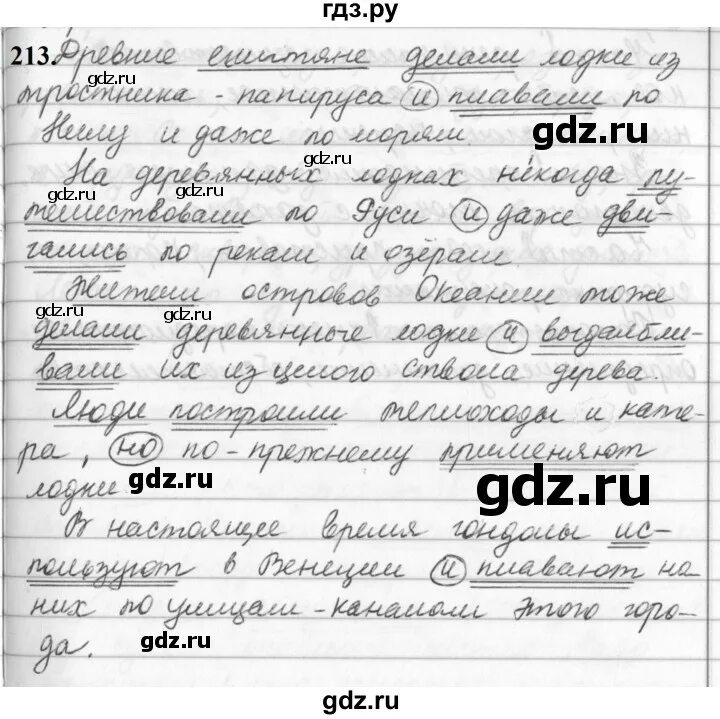 гдз.ру
213. Древние египтяне делали лодки из
gdz.ru
тростника - папируса и плавали по
gdz.ru
Нилу и даже по морям.
gdz.ru
На деревянных лодках некогда пу-
gdz.ru
тешествовали по Руси и даже дви-
gdz.ru
гались по рекам и озёрам.
Жители островов Океании тоже
gdz.ru
gdz.ru
делали деревянные лодки и выдалбли-
вали их из целого ствола дерева.
Люди построили теплоходы и кате-
gdz.ru
ра, но по - прежнему применяют
лодки.
gdz.ru
gdz.ru
В настоящее время гондолы ис-
пользуют в Венеции и плавают на
gdz.ru
них по улицам - каналам этого горо-
gdz.ru
да.
gdz.ru
gdz.ru